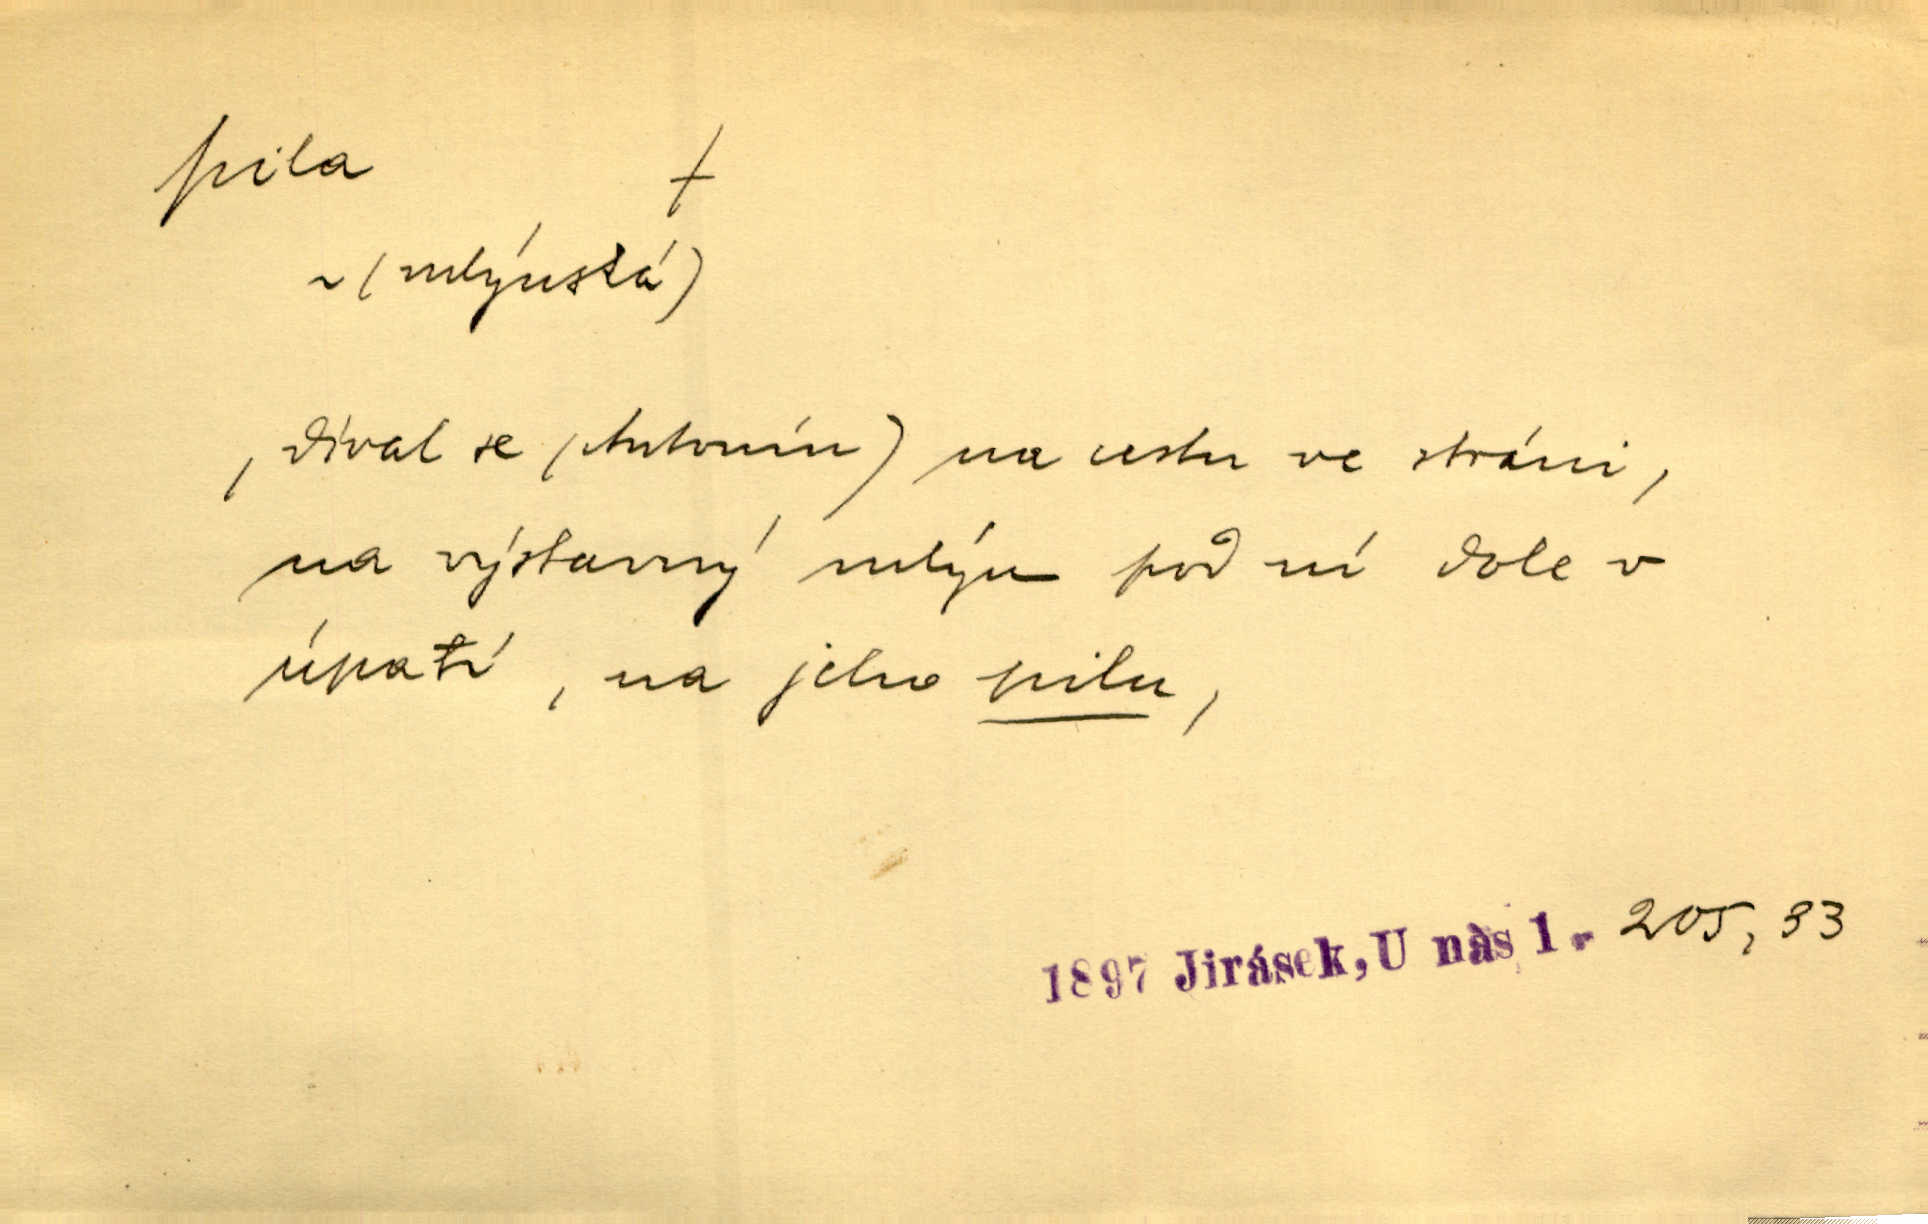 pila +
~ (mlýnská)
, díval se (Antonín) na cestu ve stráni,
na výstavný mlýn pod ní dole v
úpatí, na jeho pilu,
1897 Jirásek, U nás 1. 205, 33